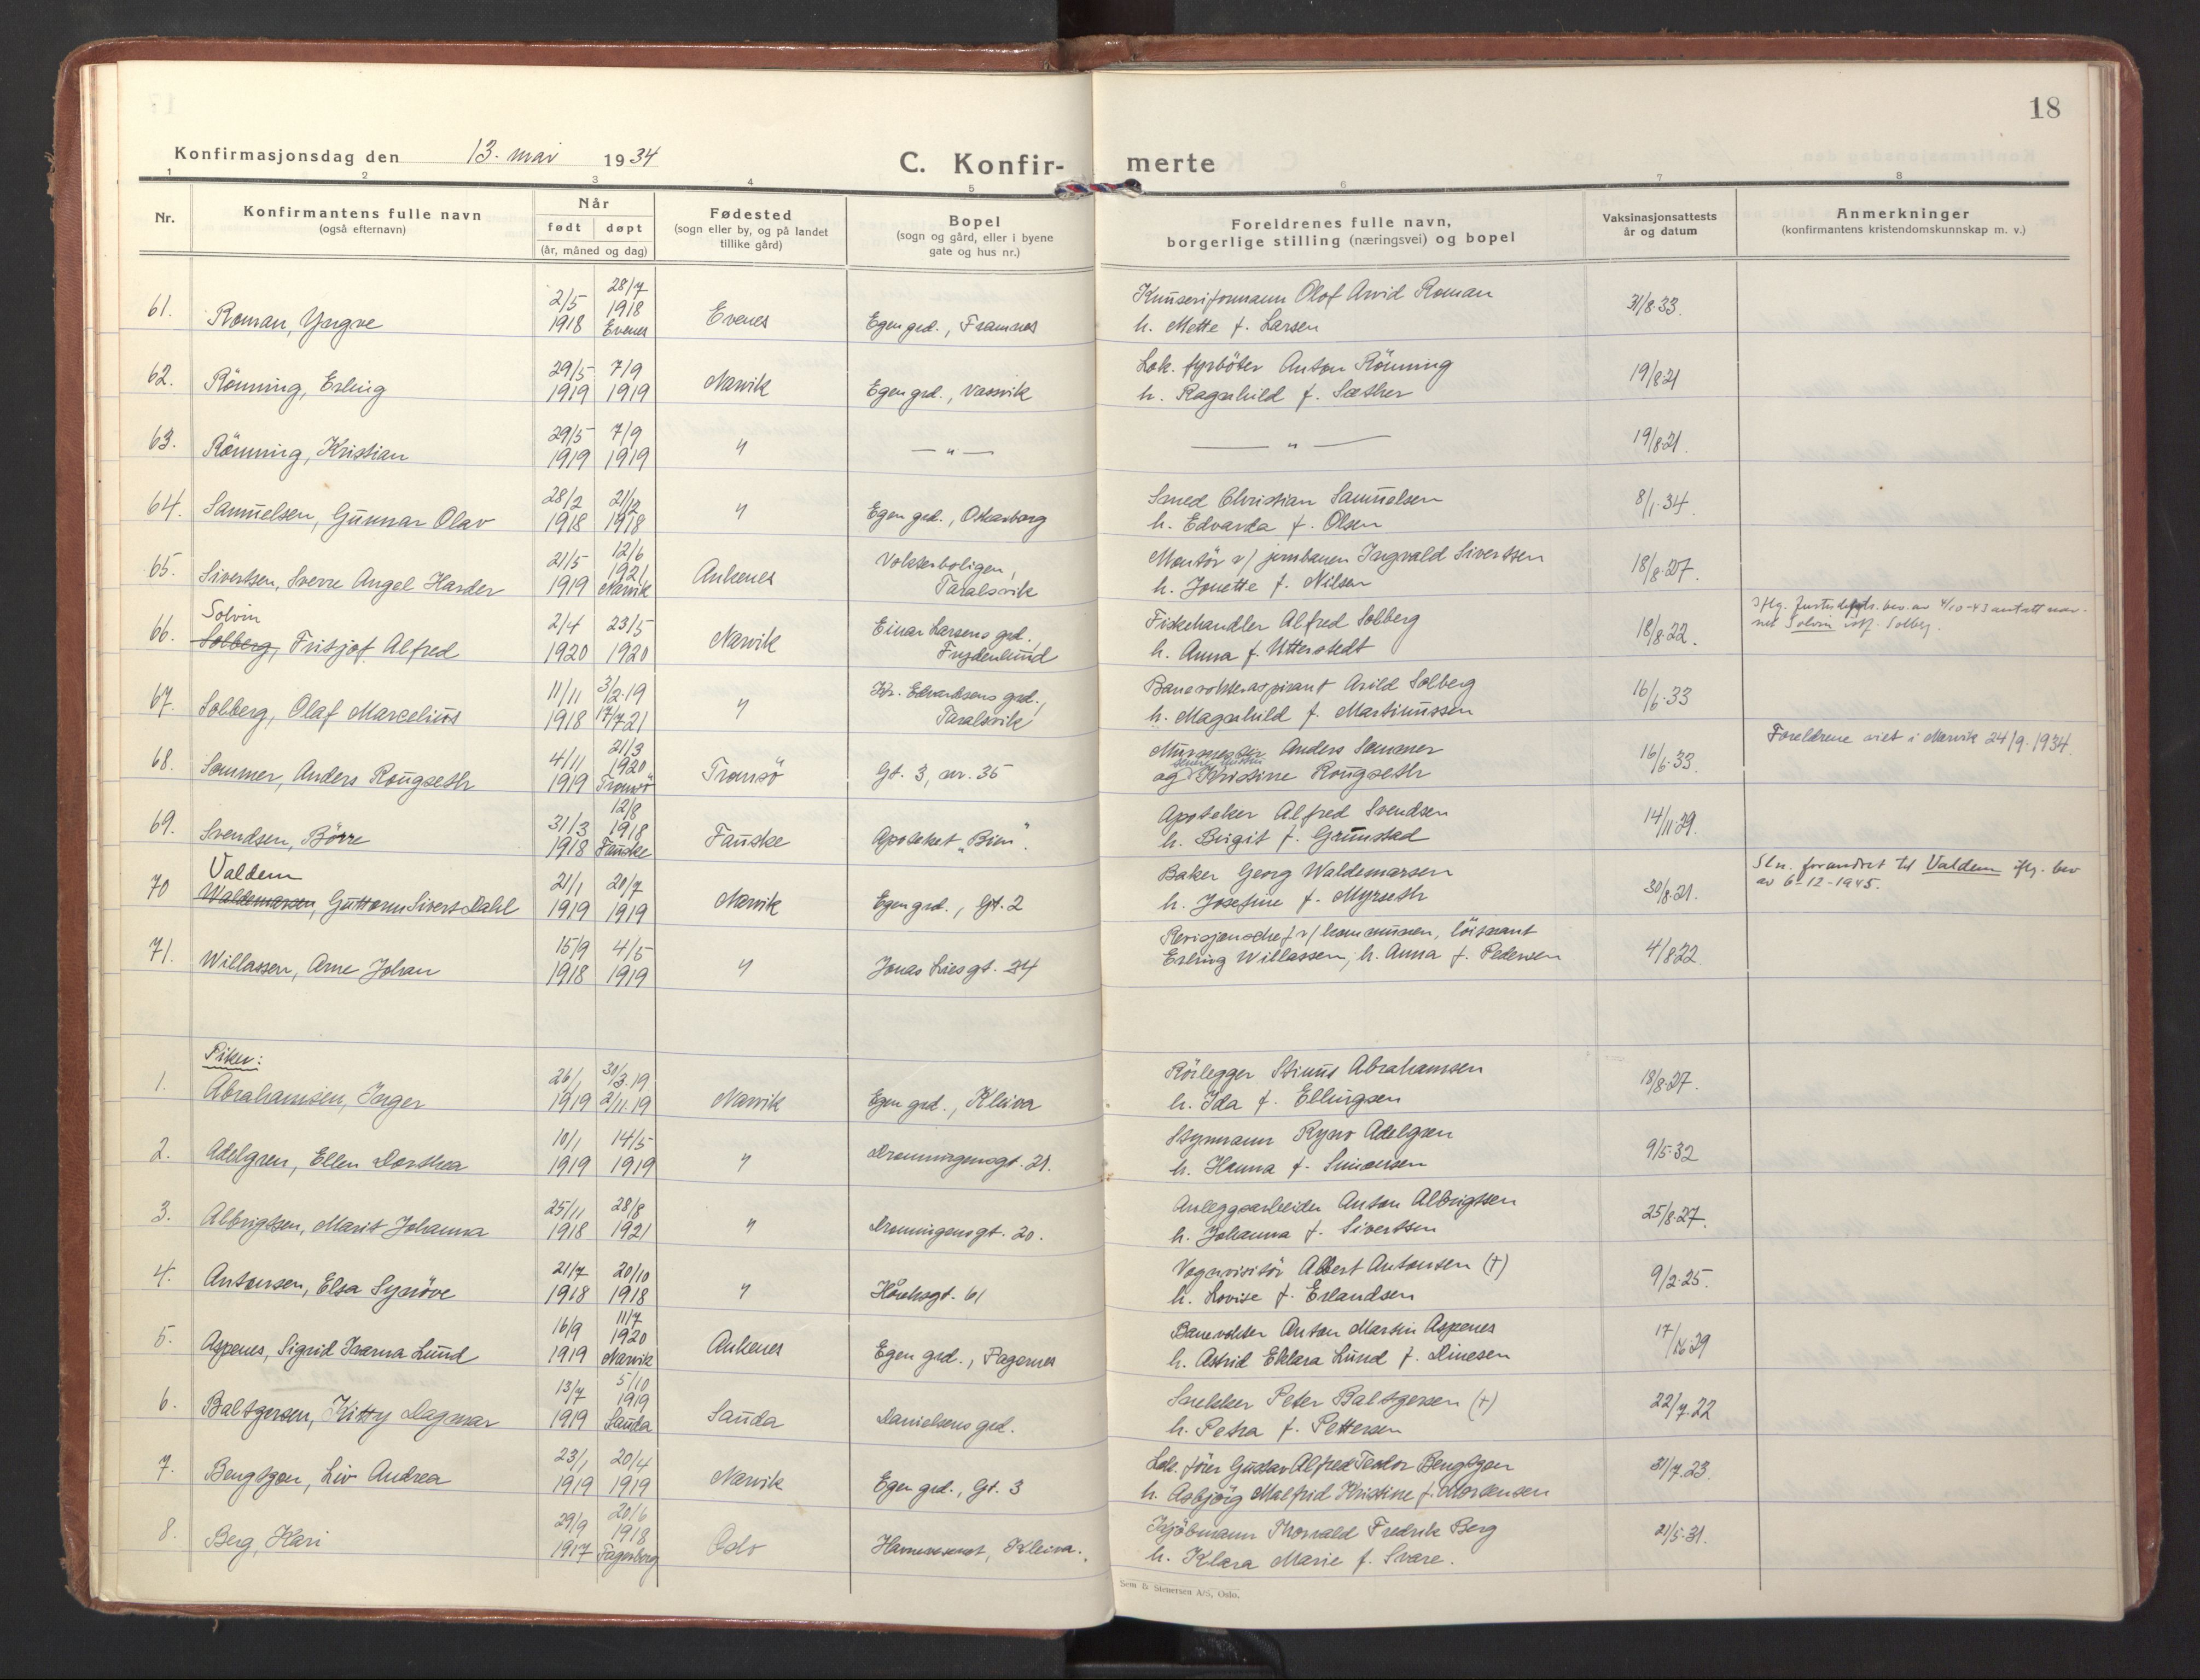 18
Konfirmasjonsdag den 13. mai 1934
C. Konfir- merte
1 2 3 4 5 6 7 8
Nr.
Konfirmantens fulle navn
(også efternavn)
Når
født døpt
(år, måned og dag)
Fødested
(sogn eller by, og på landet
tillike gård)
Bopel
(sogn og gård, eller i byene
gate og hus nr.)
Foreldrenes fulle navn,
borgerlige stilling (næringsvei) og bopel
Vaksinasjonsattests
år og datum
Anmerkninger
(konfirmantens kristendomskunnskap m. v.)
61. Roman, Yngve 2/5 1918 28/7 1918 Evenes Evenes Egen grd., Framnes
Olof Arvid Roman
h. Mette f. Larsen 31/8.33.
62. Rönning, Erling 29/5 1919 7/9 1919 Narvik Egen grd., Vassvik
Lok. fyrböter Anton Rönning
h. Ragnhild f. Sæther 19/8.21
63. Rönning, Kristian 29/5 1919 7/9 1919 " — " — — " — 19/8.21.
64. Samuelsen, Gunnar Olav 28/2 1918 21/12 1918 " Egen grd., Oskarborg
Smed Christian Samuelsen
h. Edvarda f. Olsen 8/1.34.
65. Sivertsen, Sverre Angel Harder 21/5 1919 12/6 1921 Narvik Ankenes Vokterboligen, Taralsvik
Montör v/ jernbanen Ingvald Sivertsen
h. Jonette f. Nilsen 18/8.27.
Solvin
66. Solberg, Fritjof Alfred 2/4 1920 23/5 1920 Narvik Einar Larsens grd. Frydenlund
Fiskehandler Alfred Solberg
h. Anna f. Utterstedt 18/8.22.
bev. av 4/10-43 antatt nav-
net Solvin istf. Solberg.
67. Solberg, Olaf Marcelius 11/11 1918 3/2.19 17/7.21 " Kr. Edvardsens grd., Taralsvik
Banevokteraspirant Arild Solberg
h. Magnhild f. Martinussen 16/6.33
68. Sommer, Anders Rougseth 4/11 1919 21/3 1920 Tromsö Tromsö Gt. 3, nr. 35
Murmester Anders Sommer
og Kristine Rougseth 16/6.33.
Foreldrene viet i Narvik 24/9.1934.
69. Svendsen, Börre 31/3 1918 12/8 1918 Fauske Fauske Apoteket „Bien".
Apoteker Alfred Svendsen
h. Birgit f. Grünstad 14/11.29.
Valdem
70 Waldemarsen, Guttorm Sivert Dahl 21/1 1919 20/7 1919 Narvik Egen grd., Gt. 2
Baker Georg Waldemarsen
h. Josefine f. Myrseth 30/8.21.
Sln. forandret til Valdem iflg. bev
av 6-12-1945.
71. Willassen, Arne Johan 15/9 1918 4/5 1919 " Jonas Lies gt. 34
Revisjonschef v/ kommunen, löitnant
Erling Willassen, h. Anna f. Pedersen 4/8.22.
Piker:
1. Abrahamsen, Inger 26/1 1919 30/3.19 2/11.19 Narvik Egen grd., Kleiva
Rörlegger Abrahamsen
h. Ida f. Ellingsen 18/8.27.
2. Adelgren, Ellen Dorthea 10/1 1919 14/5 1919 " Dronningensgt. 21.
Styrmann Adelgren
h. Hanna f. Simonsen 9/5.32
3. Albrigtsen, Marit Johanna 25/11 1918 28/8 1921 " Dronningensgt. 20.
Anleggsarbeider Anton Albrigtsen
h. Johanna f. Sivertsen 25/8.27.
4. Antonsen, Elsa Synöve 21/7 1918 20/10 1918 " Håreksgt. 61
Vognvisitör Albert Antonsen (†)
h. Lovise f. Erlandsen 9/2.25.
5. Aspenes, Sigrid Ivarna Lund 16/9 1919 11/7 1920 Narvik Ankenes Egen grd., Fagernes
Banevokter Anton Martin Aspenes
h. Astrid Eklara Lund f. Dinesen
6. Baltzersen, Kitty Dagmar 13/7 1919 5/10 1919 Sauda Sauda Danielsens grd.
Snekker Peter Baltzersen (†)
h. Petra f. Pettersen 22/7.22
7. Bengtzon, Liv Andrea 23/1 1919 20/4 1919 Narvik Egen grd., Gt. 3
Lok. förer Gustav Alfred Teodor Bengtzon
h. Asbjörg Malfrid Kristine f. Mortensen 31/7.23.
8. Berg, Kari 29/9 1917 20/6 1918 Fagerborg Oslo Havnevesenet, Kleiva.
Kjöbmann Thorvald Fredrik Berg
h. Klara Marie f. Svare. 21/5.31.
Sem & Stenersen A/S, Oslo.